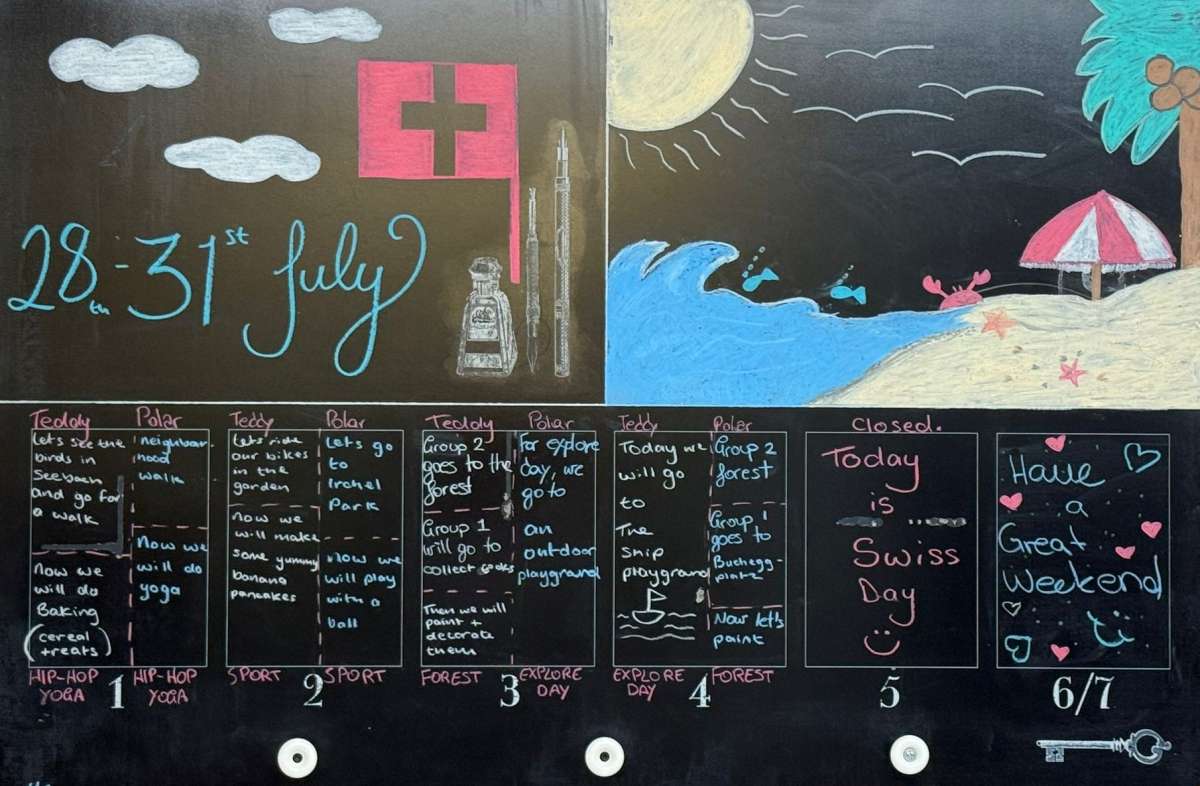 28th - 31st July
Teddy
Let's see the
birds in
Seebach
and go for
a walk
Now we
will do
Baking
(cereal
treats)
HIP-HOP
YOGA
Polar
neighbour
hood
walk
Now we
will do
yoga
HIP-HOP
YOGA
1
Teddy
Let's ride
our bikes
in the
garden
Now we
will make
some yummy
banana
pancakes
SPORT
Polar
Let's go
to
Irchel
Park
Now we
will play
with a
ball
SPORT
2
Teddy
Group 2
goes to the
forest
Group 1
will go to
collect
Then we will
paint +
decorate
them
FOREST
Polar
For explore
day, we
go to
an
outdoor
playground
EXPLORE
DAY
3
Teddy
Today we
will go
to
The
Ship
playground
EXPLORE
DAY
Polar
Group 2
forest
Group 1
goes to
Buchegg-
platz
Now let's
paint
FOREST
4
Closed.
Today
is
Swiss
Day
5
Have
a
Great
Weekend
6/7